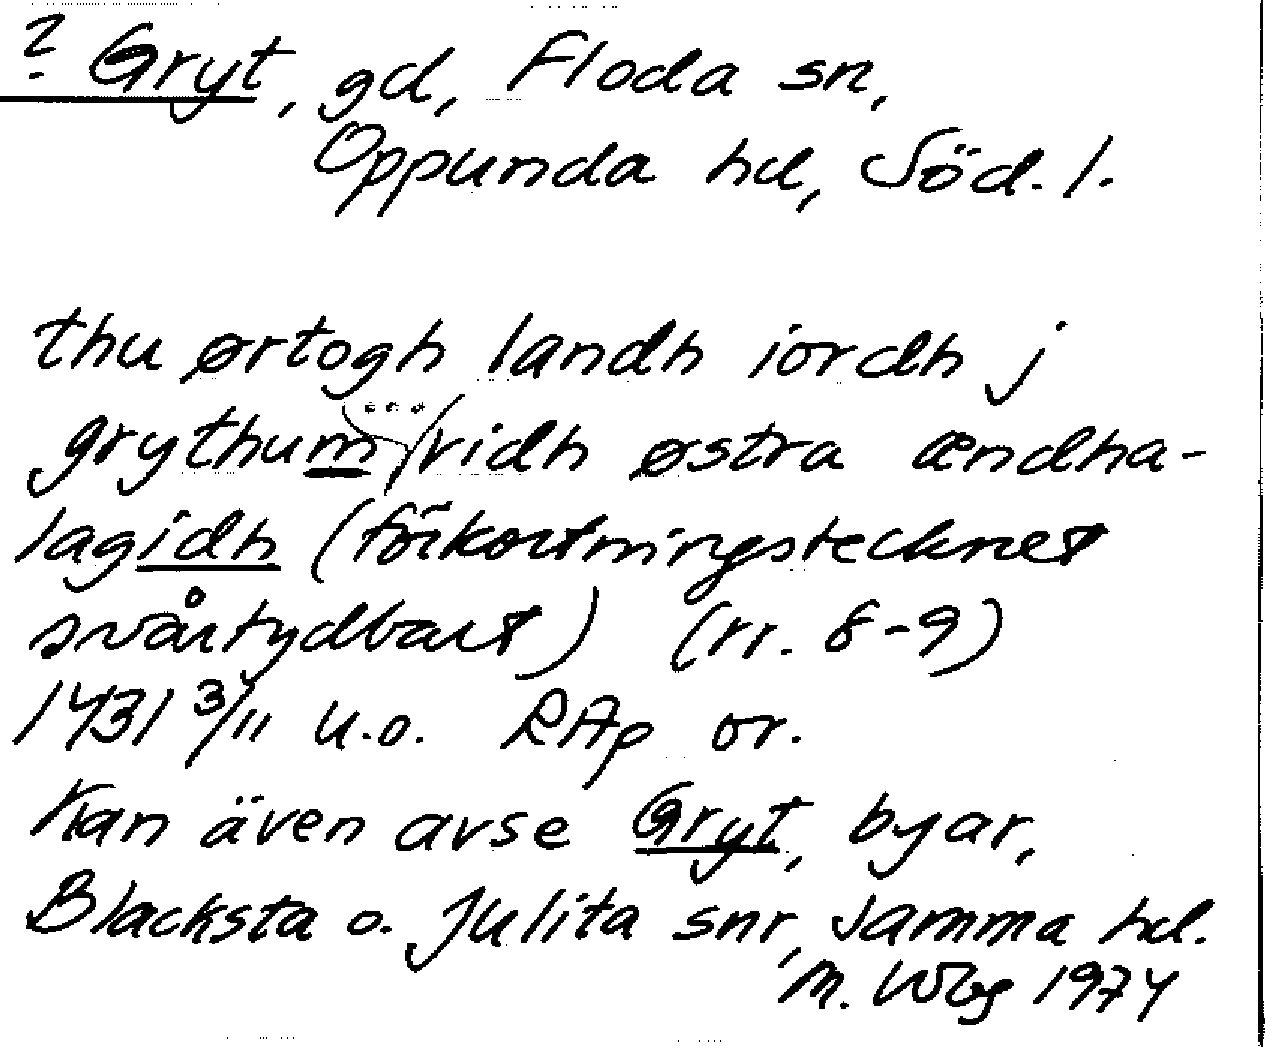 ? Gryt, gd, Floda sn,
Oppunda hd, Söd. l.
thu ørtogh landh iordh j
grythum ... /vidh østra ændha-
lagidh (förkortningstecknet
svårtydbart) (rr. 8-9)
1431 3/11 u.o. RAp or.
Kan även avse Gryt, byar,
Blacksta o. Julita snr, samma hd.
M. Wbg 1974